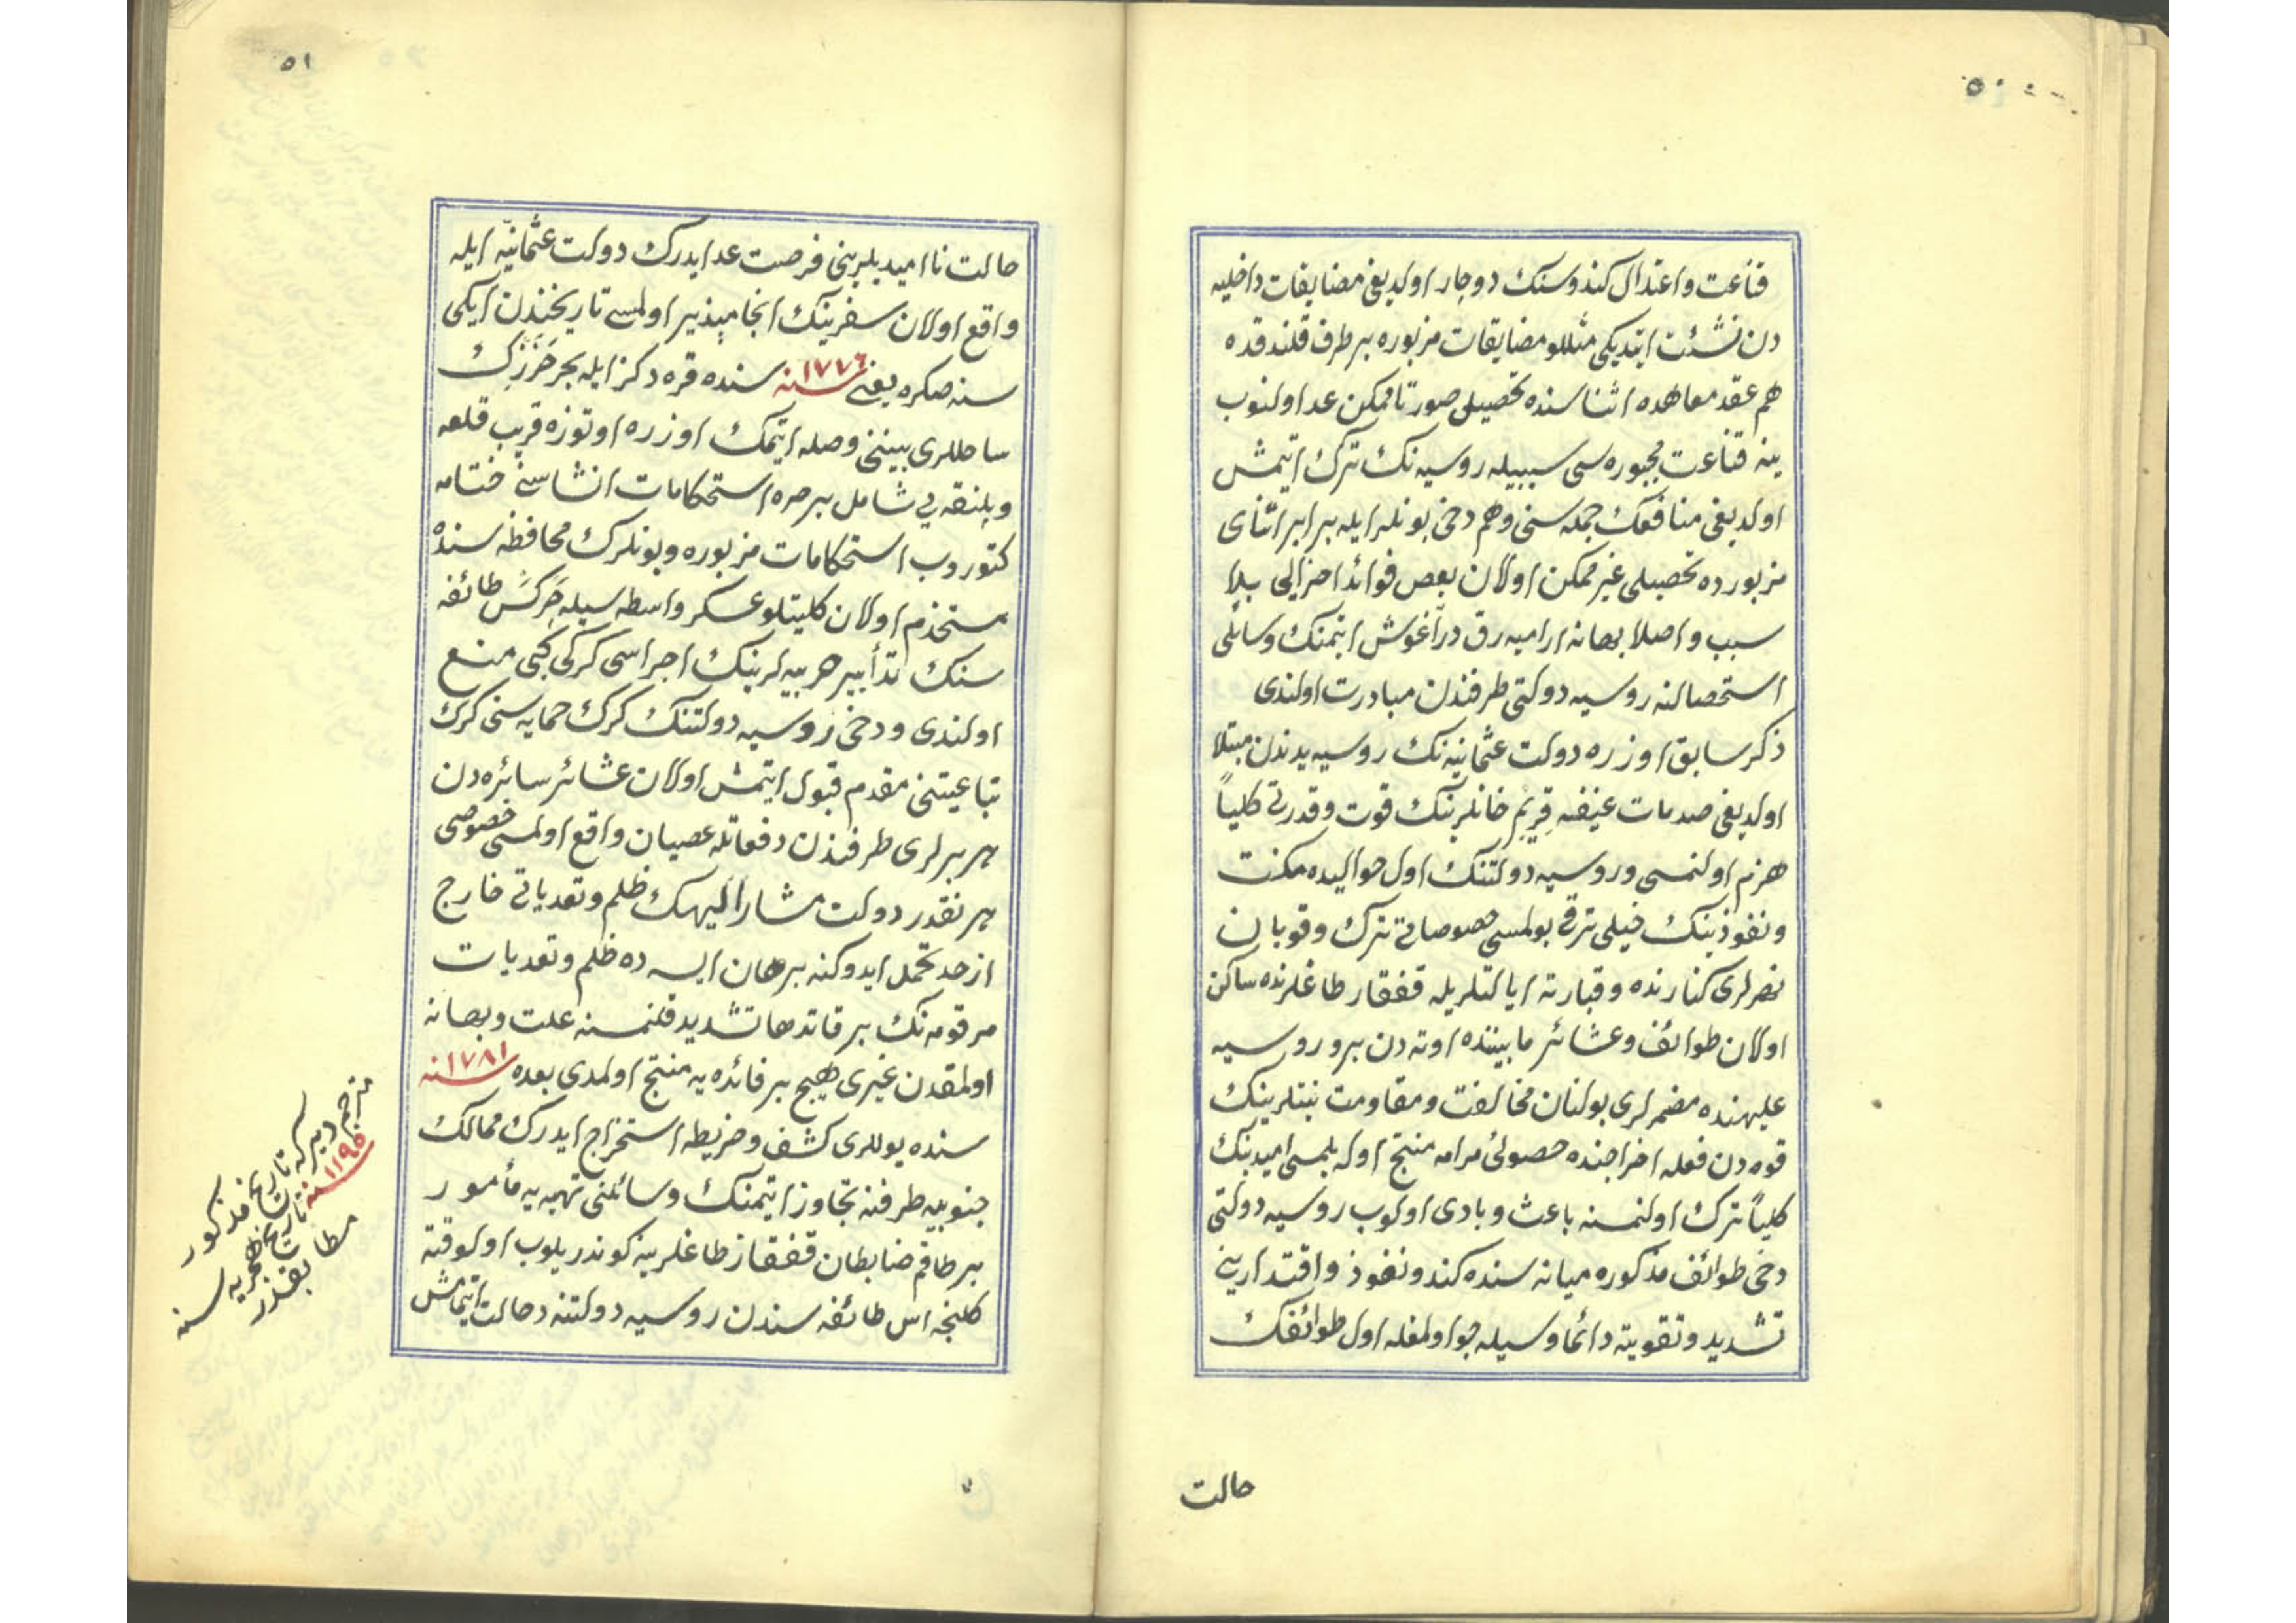 ٥٠
قناعت و اعتدال كندوسنك دوچار اولديغى مضايقات داخليه
دن نشئت ايتديكى مثللو مضايقات مزبوره بر طرف قلندقده
هم عقد معاهده اثناسنده تحصيلى صورتا ممكن عد اولنوب
ينه قناعت مجبوره سى سببيله روسيه نك ترك ايتمش
اولديغى منافعك جمله سنى و هم دخى بونلر ايله برابر اثناى
مزبورده تحصيلى غير ممكن اولان بعض فوائد اخرالى بلا
سبب و اصلا بهانه آراميه رق درآغوش ايتمنك وسائلى
استحصالنه روسيه دولتى طرفندن مبادرت اولندى
ذكر سابق اوزره دولت عثمانيه نك روسيه يدندن مبتلا
اولديغى صدمات عنيفه قريم خانلرينك قوت و قدرتى كلياً
هزم اولنمسى و روسيه دولتنك اول حواليده مكنت
و نفوذينك خيلى ترقى بولمسى خصوصاتى ترك و قوبان
نهرلرى كنارنده و قبارته ايالتلريله قفقاز طاغلرنده ساكن
اولان طوائف و عشائر مابيننده اوته دن برو روسيه
عليهنده مضمرلرى بولنان مخالفت و مقاومت نيتلرينك
قوه دن فعله اخراجنده حصولى مرامه منتج اوله بلمسى اميدينك
كلياً ترك اولنمسنه باعث و بادى اولوب روسيه دولتى
دخى طوائف مذكوره ميانه سنده كندو نفوذ و اقتدارينى
تشديد و تقويته دائما وسيله جو اولمغله اول طوائفك
حالت
٥١
حالت نااميديلرينى فرصت عد ايدرك دولت عثمانيّه ايله
واقع اولان سفرينك انجامپذير اولمسى تاريخندن ايكى
سنه صكره يعنى ١٧٧٦ سنه سنده قره دكز ايله بحر خزرك
ساحللرى بيننى وصله ايتمك اوزره اوتوزه قريب قلعه
و پلنقه يى شامل بر صره استحكامات انشاسنى ختامه
كتوروب استحكامات مزبوره و بونلرك محافظه سنده
مستخدم اولان كليتلو عسكر واسطه سيله چركس طائفه
سنك تدابير حربيه لرينك اجراسى كركى كبى منع
اولندى و دخى روسيه دولتنك كرك حمايه سنى كرك
تباعيتنى مقدم قبول ايتمش اولان عشائر سائره دن
هر برلرى طرفندن دفعاتله عصيان واقع اولمسى خصوصى
هر نقدر دولت مشار اليهك ظلم و تعدياتى خارج
از حد تحمل ايدوكنه برهان ايسه ده ظلم و تعديات
مرقومه نك بر قات دها تشديد قلنمسنه علت و بهانه
اولمقدن غيرى هيچ بر فائده يه منتج اولمدى بعده ١٧٨١ سنه
سنده يوللرى كشف و خريطه استخراج ايدرك ممالك
جنوبيه طرفنه تجاوز ايتمنك وسائلنى تهيه يه مأمور
بر طاقم ضابطان قفقاز طاغلرينه كوندريلوب اولوقته
كلنجه اس طائفه سندن روسيه دولتنه دخالت ايتمامش
مترجم دير كه تاريخ مذكور
١١٩٥ سنه تاريخ هجريه سنه
مطابقدر